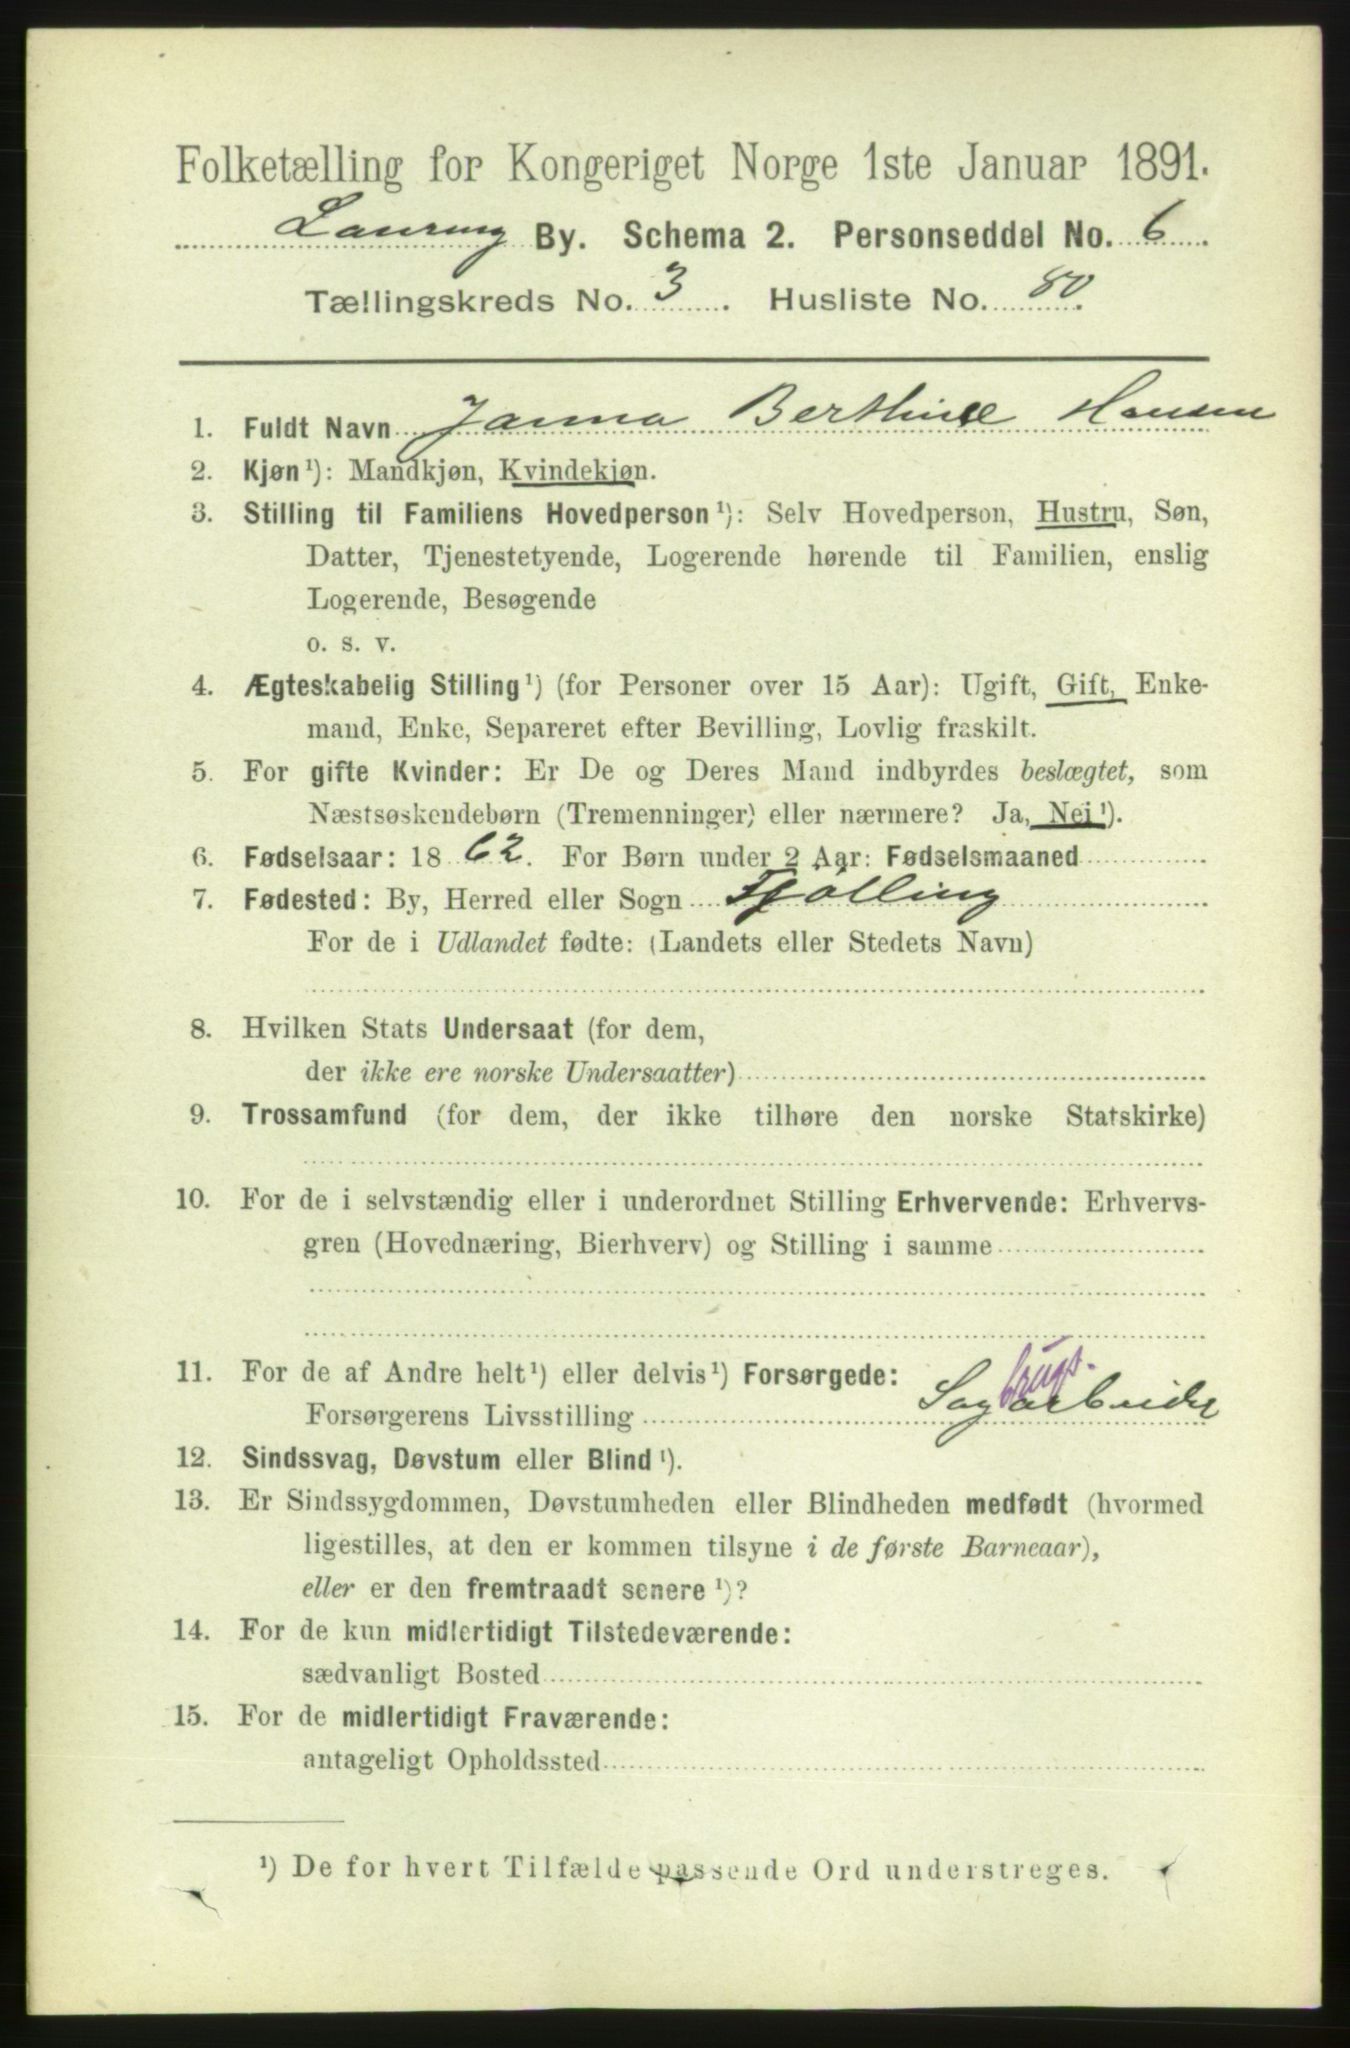 Folketælling for Kongeriget Norge 1ste Januar 1891.
Laurvig By. Schema 2. Personseddel No. 6
Tællingskreds No. 3. Husliste No. 80.
1. Fuldt Navn Janna Berthine Hansen
2. Kjøn¹): Mandkjøn, Kvindekjøn.
3. Stilling til Familiens Hovedperson¹): Selv Hovedperson, Hustru, Søn,
Datter, Tjenestetyende, Logerende hørende til Familien, enslig
Logerende, Besøgende
o. s. v.
4. Ægteskabelig Stilling¹) (for Personer over 15 Aar): Ugift, Gift, Enke-
mand, Enke, Separeret efter Bevilling, Lovlig fraskilt.
5. For gifte Kvinder: Er De og Deres Mand indbyrdes beslægtet, som
Næstsøskendebørn (Tremenninger) eller nærmere? Ja, Nei¹).
6. Fødselsaar: 1862. For Børn under 2 Aar: Fødselsmaaned
7. Fødested: By, Herred eller Sogn Tjølling
For de i Udlandet fødte: (Landets eller Stedets Navn)
8. Hvilken Stats Undersaat (for dem,
der ikke ere norske Undersaatter)
9. Trossamfund (for dem, der ikke tilhøre den norske Statskirke)
10. For de i selvstændig eller i underordnet Stilling Erhvervende: Erhvervs-
gren (Hovednæring, Bierhverv) og Stilling i samme
11. For de af Andre helt¹) eller delvis¹) Forsørgede:
brugs-
Forsørgerens Livsstilling Sagarbeider
12. Sindssvag, Døvstum eller Blind¹).
13. Er Sindssygdommen, Døvstumheden eller Blindheden medfødt (hvormed
ligestilles, at den er kommen tilsyne i de første Barneaar),
eller er den fremtraadt senere¹)?
14. For de kun midlertidigt Tilstedeværende:
sædvanligt Bosted
15. For de midlertidigt Fraværende:
antageligt Opholdssted
¹) De for hvert Tilfælde passende Ord understreges.